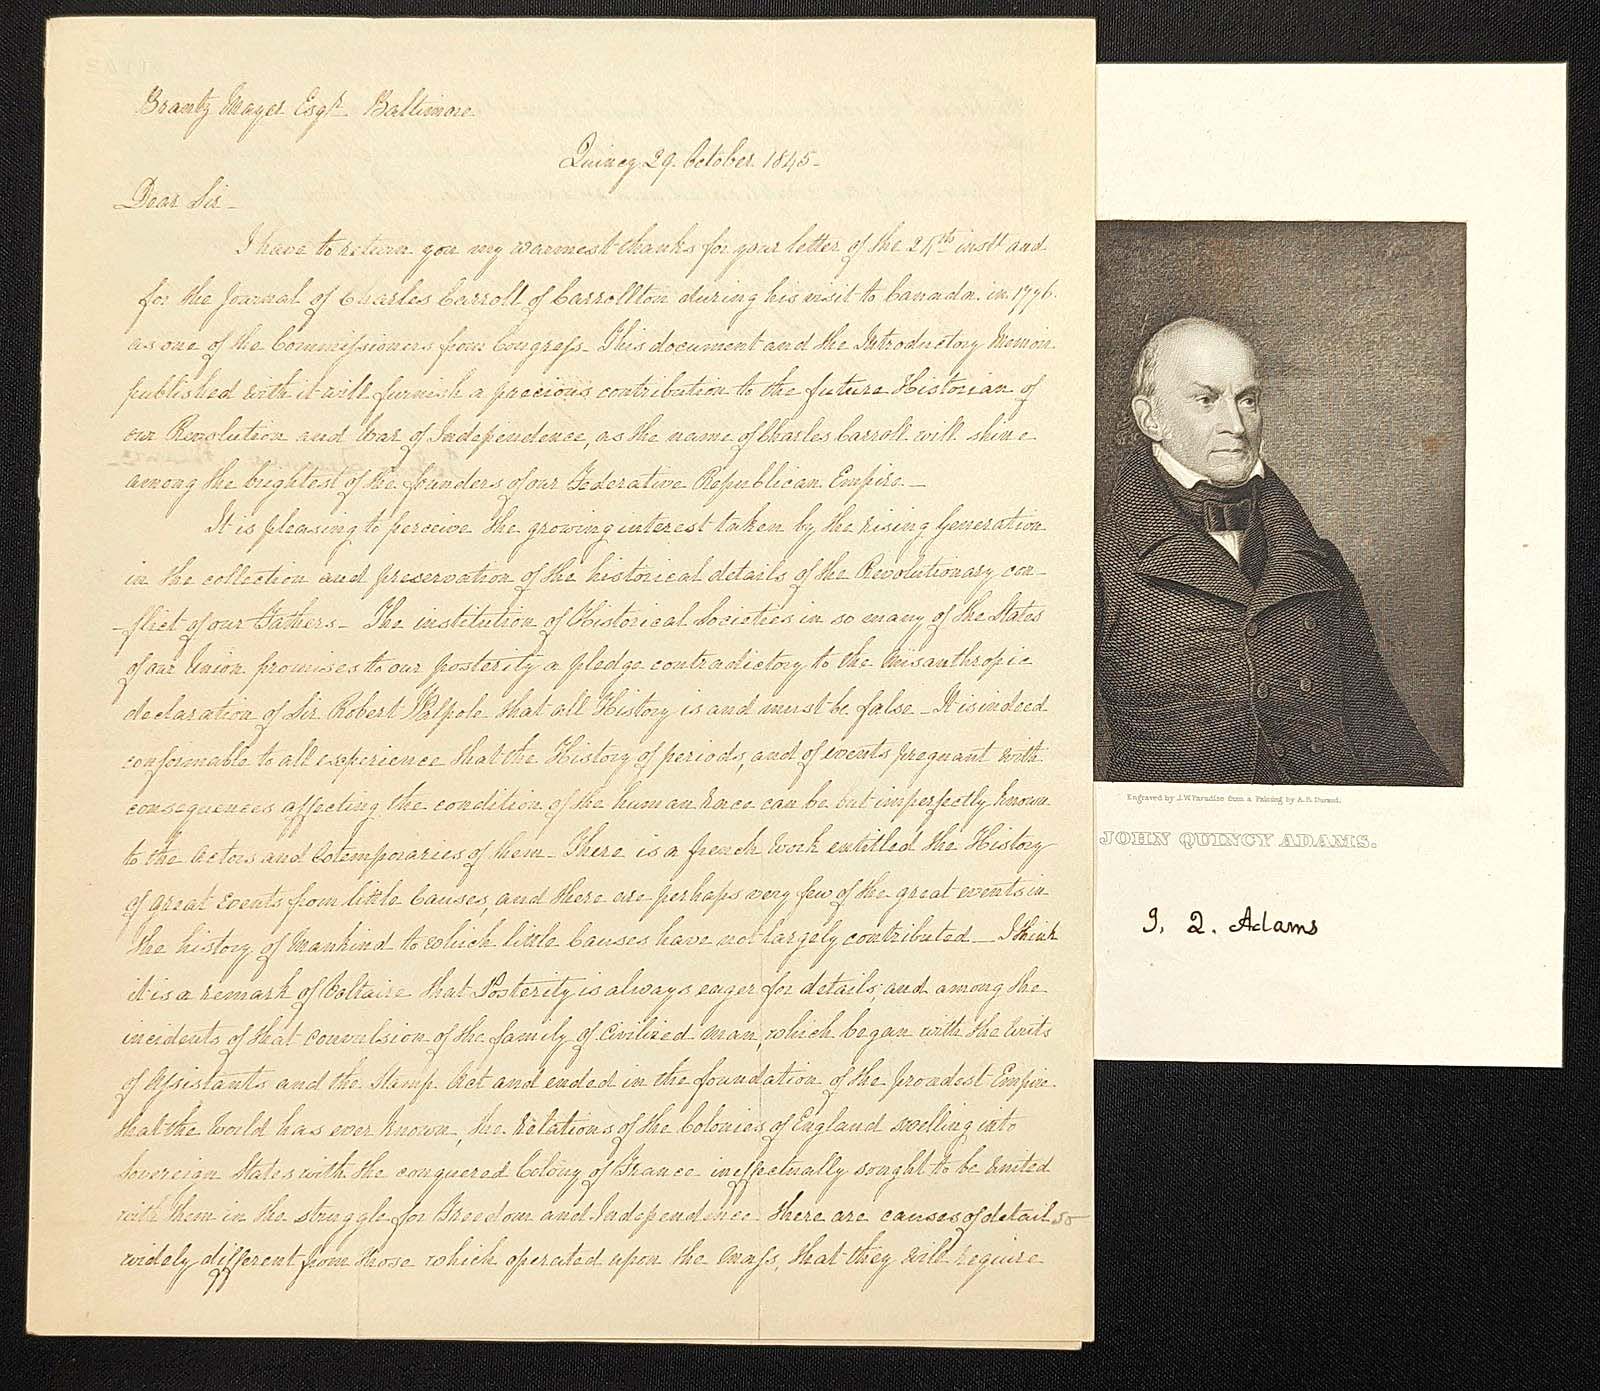 Brantz Mayer Esqr. Baltimore
Quincy 29. October. 1845-
Dear Sir-
I have to return you my warmest thanks for your letter of the 25th instt. and
for the Journal of Charles Carroll of Carrollton during his visit to Canada. in 1776.
as one of the Commissioners from Congress- This document and the Introductory Memoir
published with it will furnish a precious contribution to the future Historian of
our Revolution and War of Independence, as the name of Charles Carroll will shine
among the brightest of the founders of our Federative Republican Empire.-
It is pleasing to perceive the growing interest taken by the rising Generation
in the collection and preservation of the historical details of the Revolutionary con-
-flict of our Fathers- The institution of Historical Societies in so many of the States
of our Union promises to our posterity a pledge contradictory to the misanthropic
declaration of Sir Robert Walpole that all History is and must be false- It is indeed
conformable to all experience that the History of periods, and of events pregnant with
consequences affecting the condition of the human Race can be but imperfectly known
to the Actors and Cotemporaries of them- There is a french Work entitled the History
of great Events from little Causes, and there are perhaps very few of the great events in
the history of Mankind to which little Causes have not largely contributed- I think
it is a remark of Voltaire that Posterity is always eager for details; and among the
incidents of that convulsion of the family of Civilized man, which began with the Writs
of Assistants and the Stamp Act and ended in the foundation of the proudest Empire
that the World has ever known, the Relations of the Colonies of England swelling into
Sovereign States with the conquered Colony of France ineffectually sought to be united
with them in the struggle for Freedom and Independence there are causes of detail so
widely different from those which operated upon the mass, that they will require
Engraved by J.W. Paradise from a Painting by A.B. Durand.
JOHN QUINCY ADAMS.
J. Q. Adams